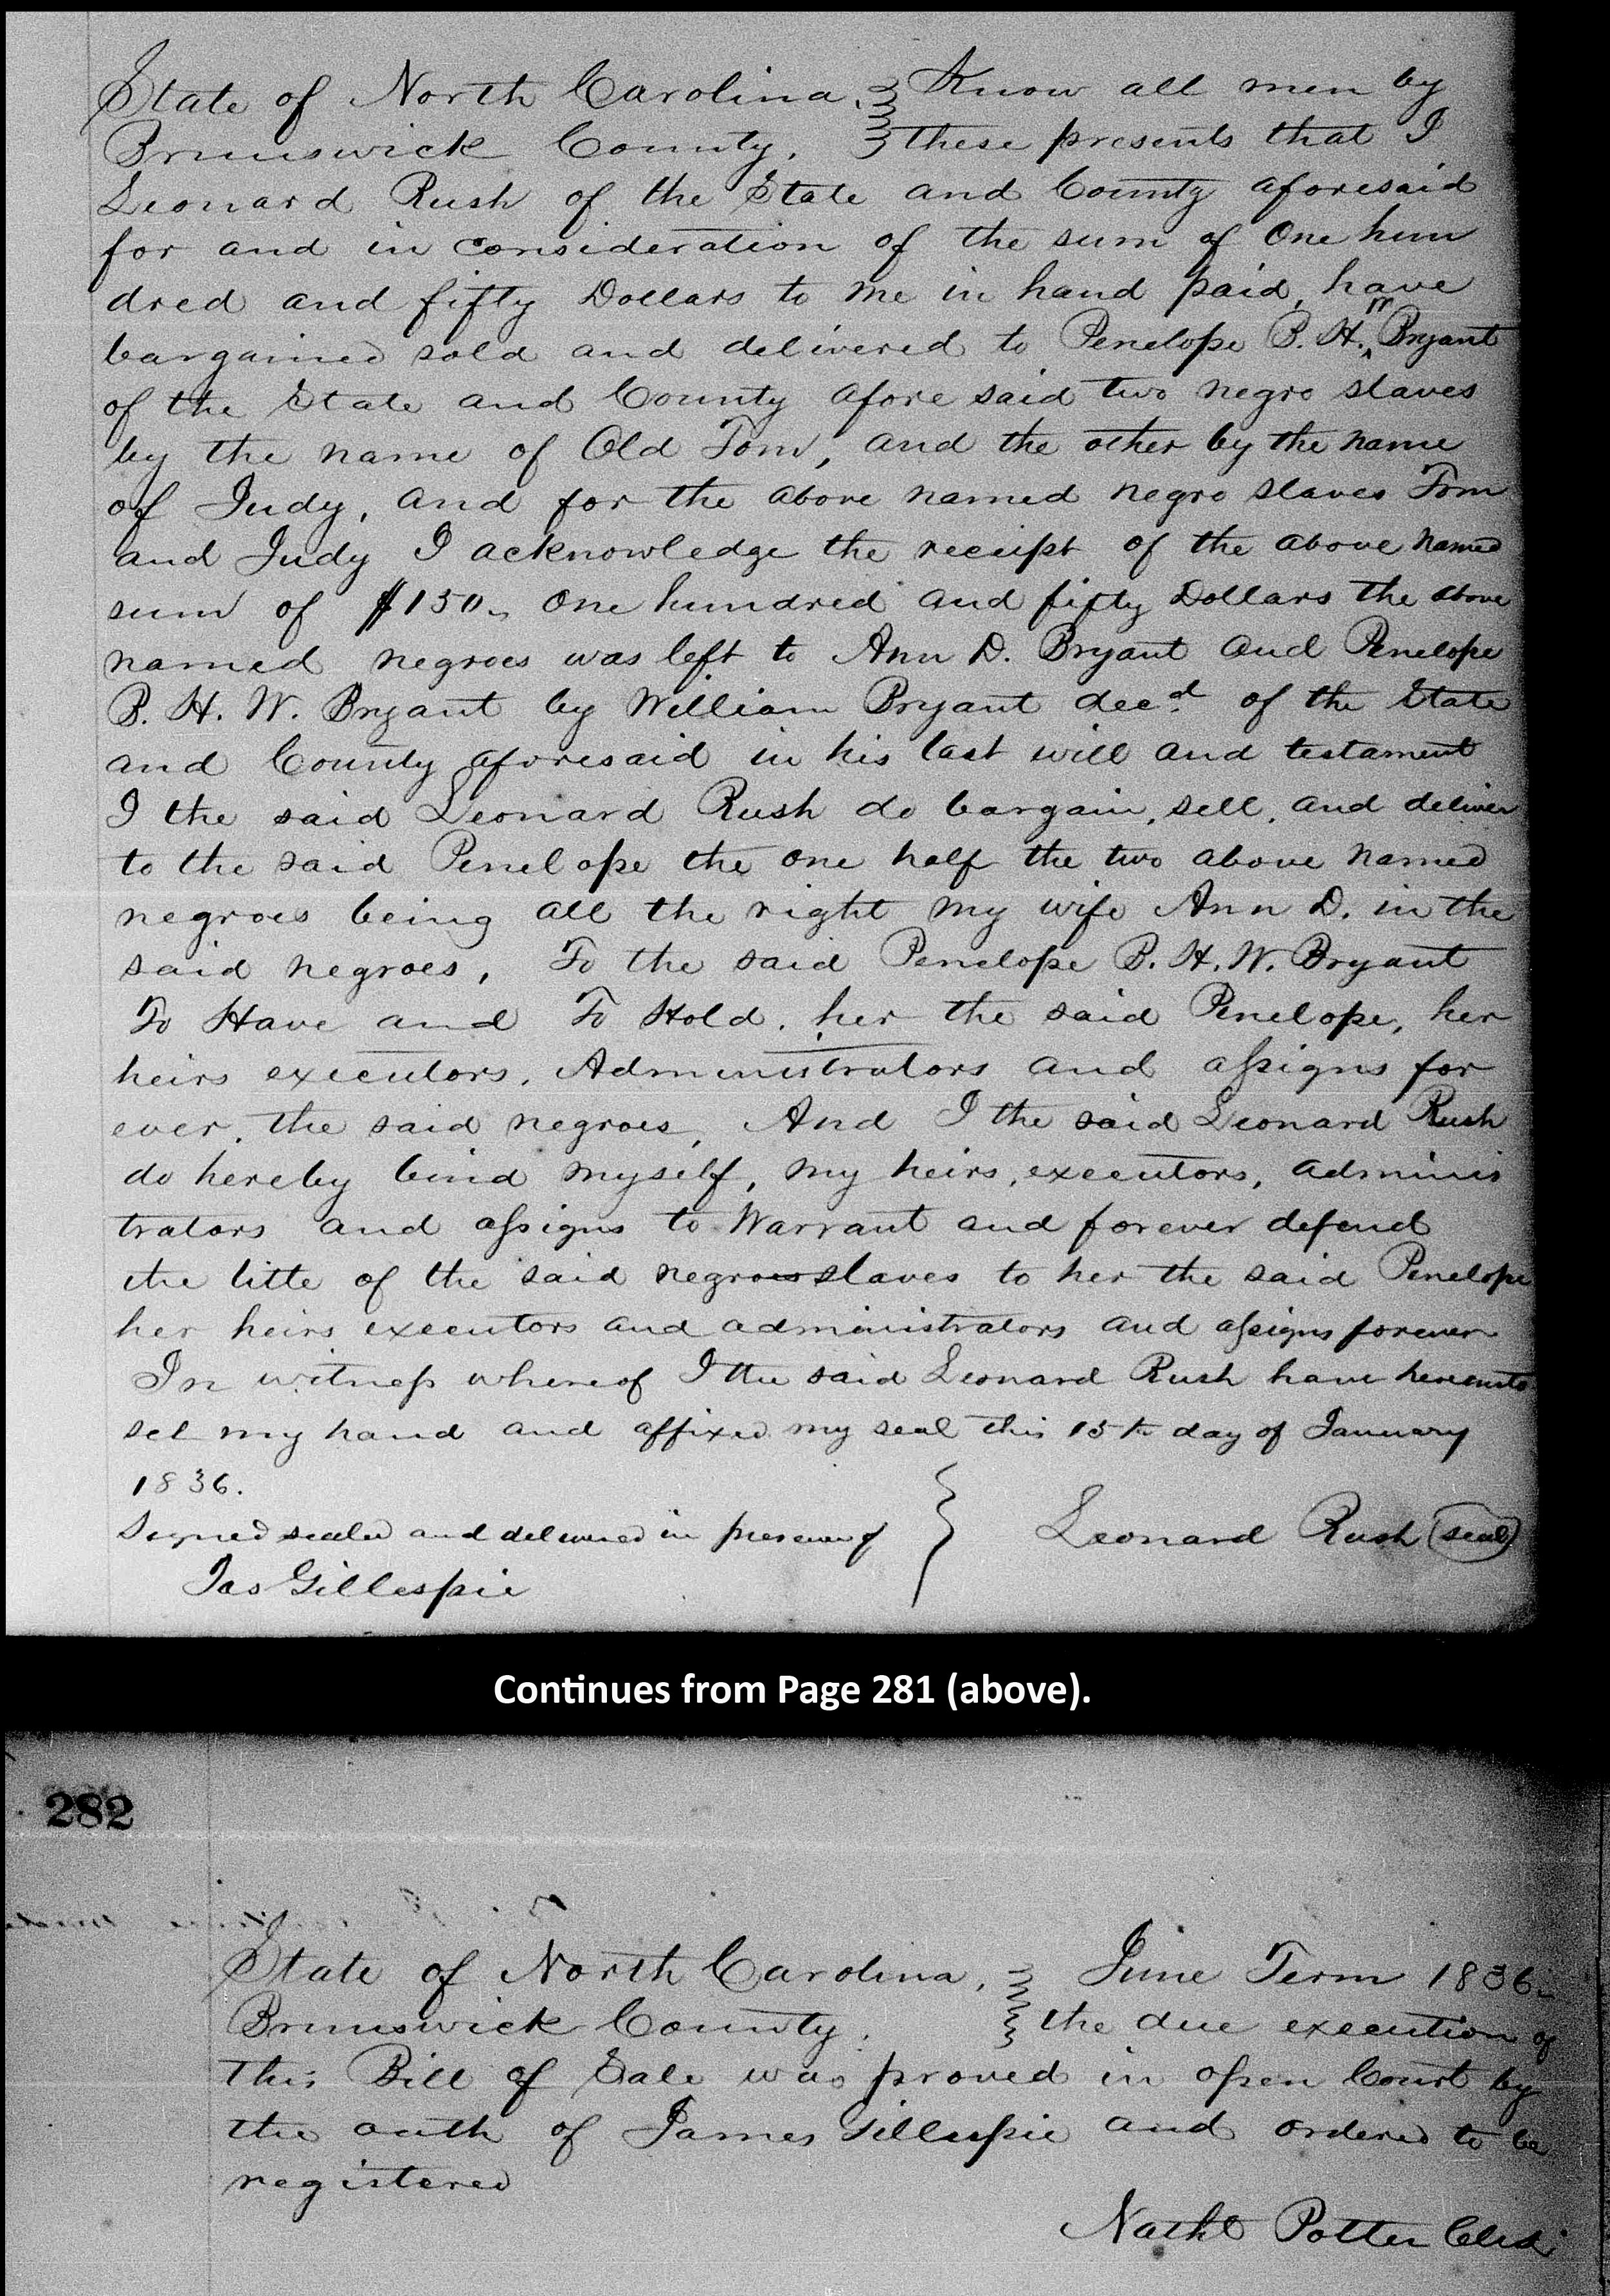 State of North Carolina, Know all men by
Brunswick County. these presents that I
Leonard Rush of the State and County aforesaid
for and in consideration of the sum of One hun
dred and fifty Dollars to me in hand paid, have
bargained sold and delivered to Penelope B. H. W Bryant
of the State and County afore said two negro slaves
by the name of Old Tom, and the other by the name
of Judy, and for the above named negro slaves Tom
and Judy I acknowledge the receipt of the above named
sum of $150. One hundred and fifty Dollars the above
named negroes was left to Ann D. Bryant and Penelope
B. H. W. Bryant by William Bryant decd. of the State
and County aforesaid in his last will and testament
I the said Leonard Rush do bargain, sell, and deliver
to the said Penelope the one half the two above named
negroes being all the right my wife Ann D. in the
said negroes, To the said Penelope B. H. W. Bryant
To Have and To Hold, her the said Penelope, her
heirs executors, Administrators and assigns for
ever, the said negroes, And I the said Leonard Rush
do hereby bind myself, my heirs, executors, adminis
trators and assigns to Warrant and forever defend
the title of the said negroes slaves to her the said Penelope
her heirs executors and administrators and assigns forever
In witness whereof I the said Leonard Rush have hereunto
set my hand and affixed my seal this 15th day of January
1836.
Signed sealed and delivered in presence of Leonard Rush (seal)
Jas Gillespie
Continues from Page 281 (above).
282
State of North Carolina, June Term 1836
Brunswick County. the due execution of
this Bill of Sale was proved in open Court by
the oath of James Gillespie and ordered to be
registered
Nathl Potter Clerk